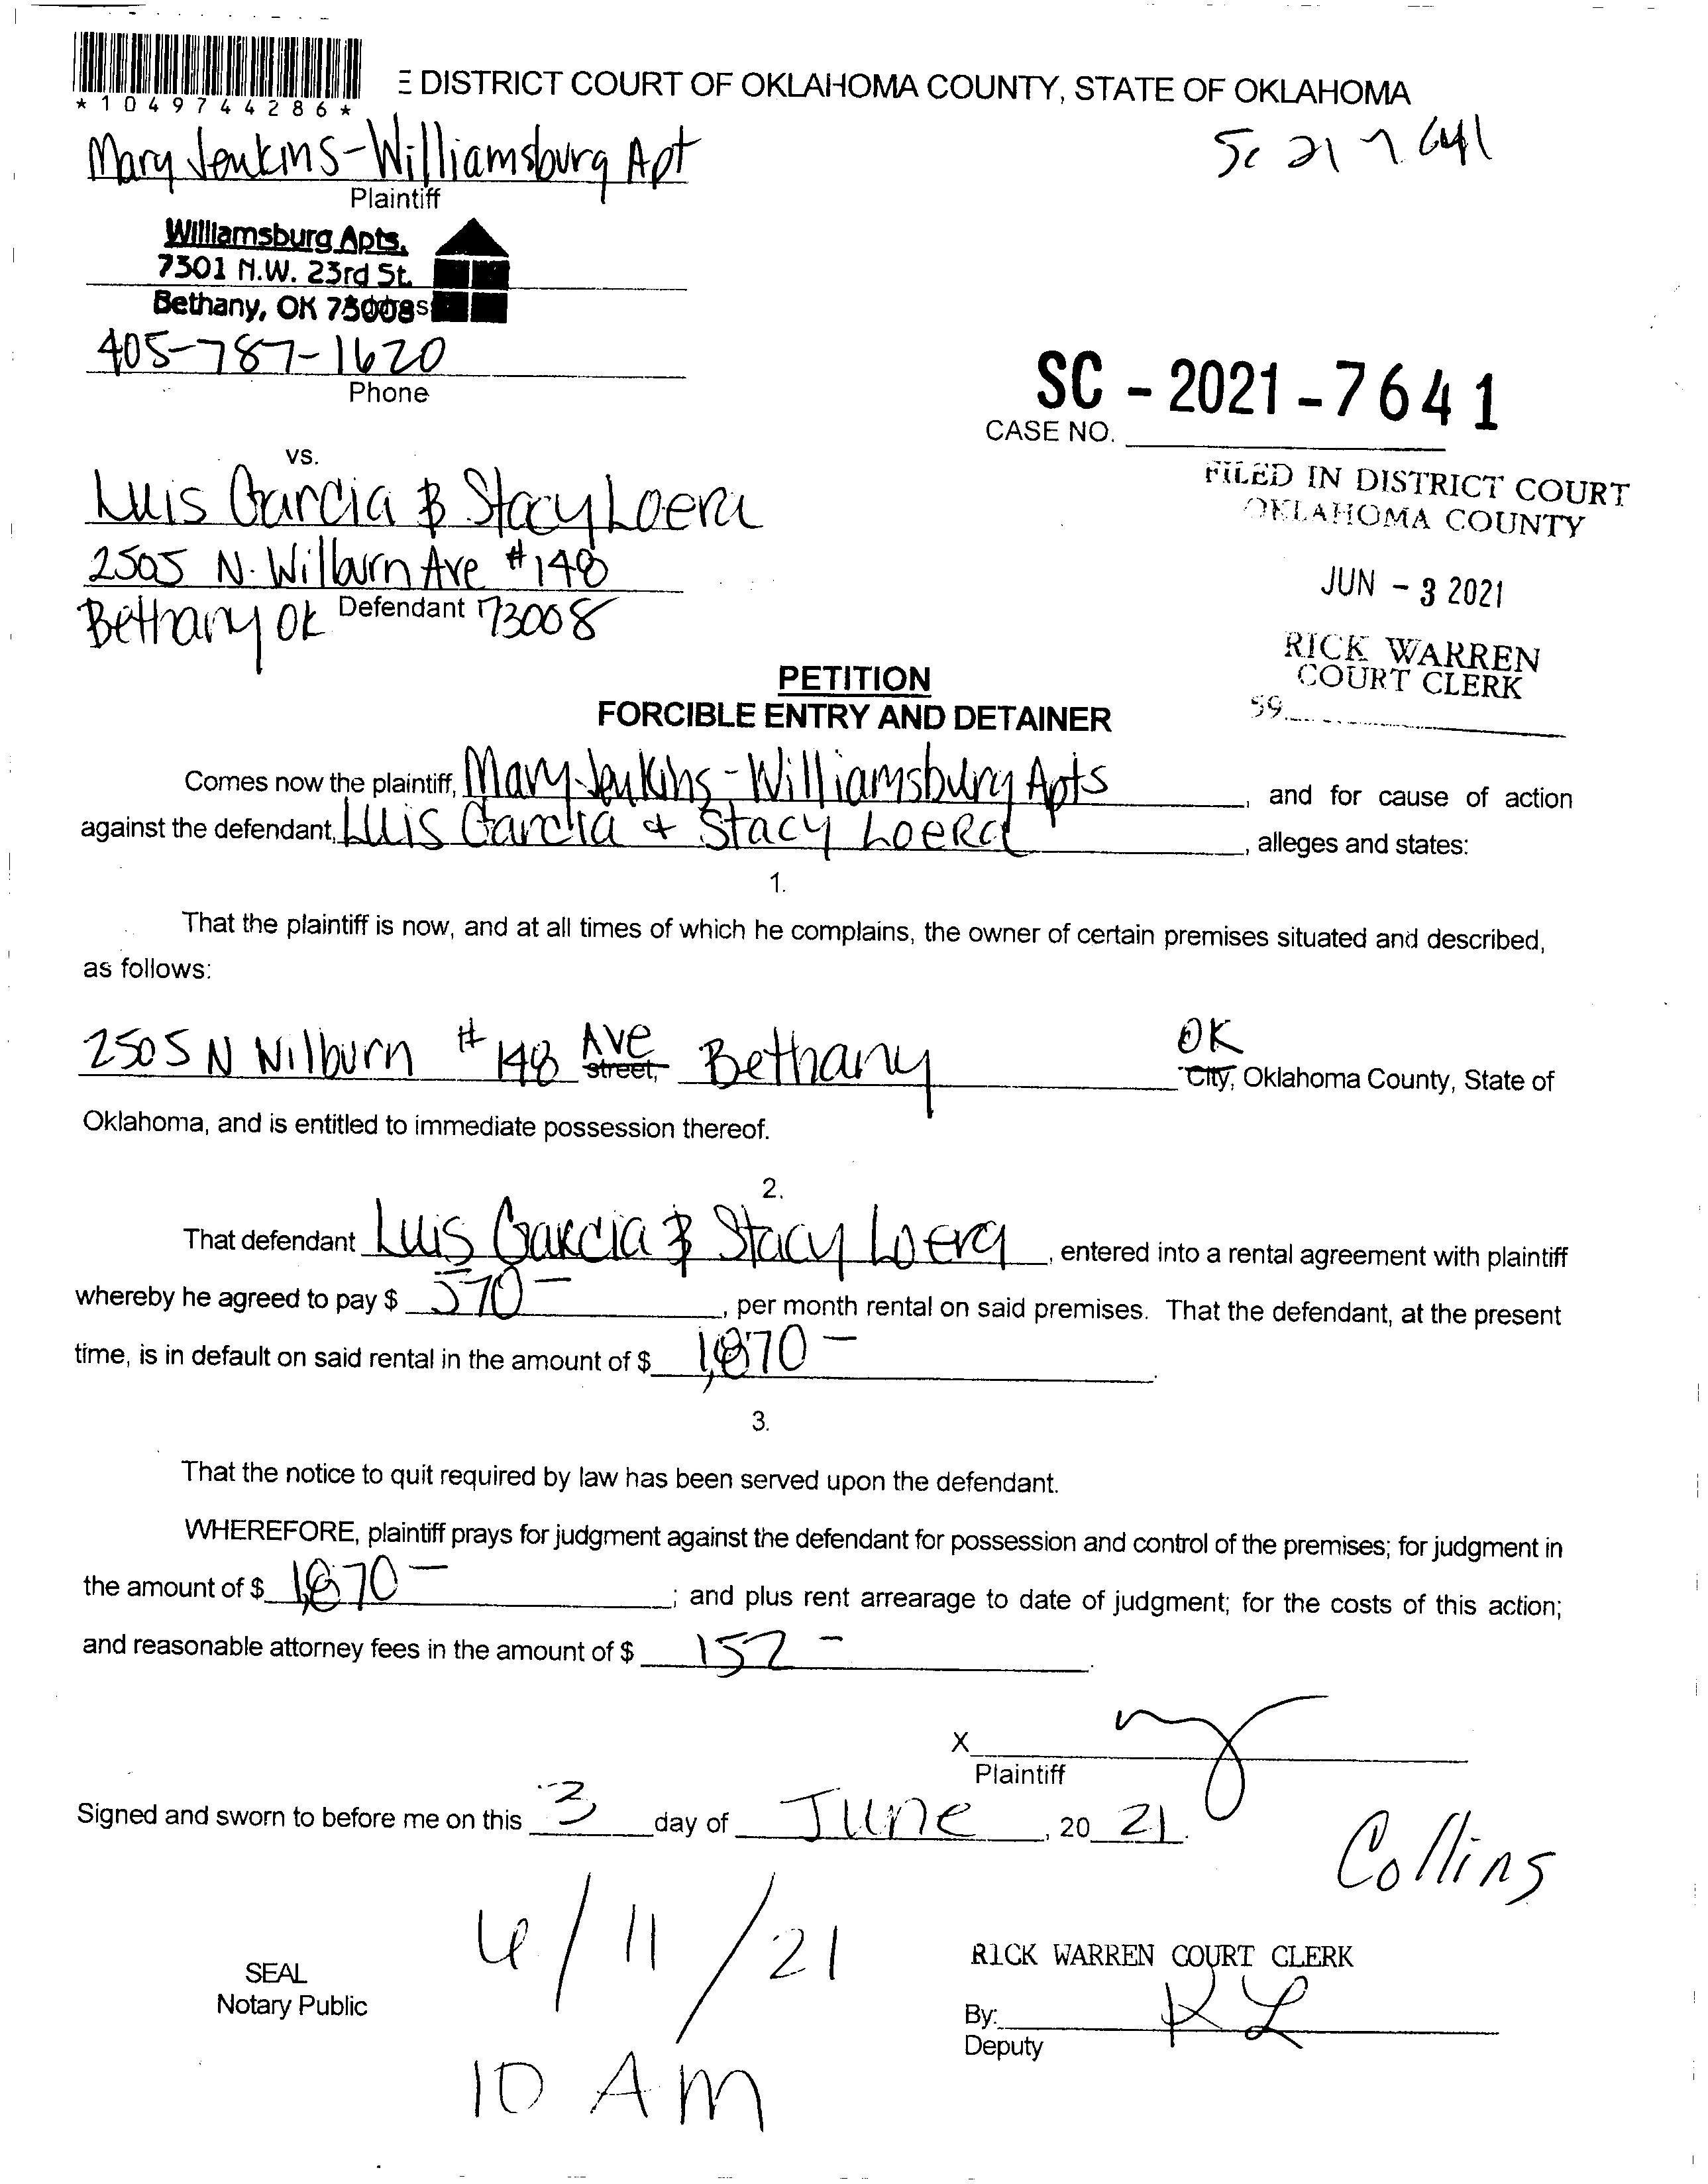 *1049744286*
E DISTRICT COURT OF OKLAHOMA COUNTY, STATE OF OKLAHOMA
Mary Jenkins-Williamsburg Apt
SC 21 7641
Plaintiff
Williamsburg Apts.
7301 N.W. 23rd St.
Bethany, OK 73008
405-787-1620
Phone
SC - 2021 - 7641
CASE NO.
vs.
Luis Garcia & Stacy Loera
FILED IN DISTRICT COURT
OKLAHOMA COUNTY
2505 N. Wilburn Ave #148
JUN - 3 2021
Bethany OK Defendant 73008
RICK WARREN
COURT CLERK
59
PETITION
FORCIBLE ENTRY AND DETAINER
Comes now the plaintiff, Mary Jenkins-Williamsburg Apts, and for cause of action
against the defendant, Luis Garcia + Stacy Loera, alleges and states:
1.
That the plaintiff is now, and at all times of which he complains, the owner of certain premises situated and described,
as follows:
2505 N Wilburn #148 Ave street, Bethany OK City, Oklahoma County, State of
Oklahoma, and is entitled to immediate possession thereof.
2.
That defendant Luis Garcia & Stacy Loera, entered into a rental agreement with plaintiff
whereby he agreed to pay $ 570-, per month rental on said premises. That the defendant, at the present
time, is in default on said rental in the amount of $ 1,870-.
3.
That the notice to quit required by law has been served upon the defendant.
WHEREFORE, plaintiff prays for judgment against the defendant for possession and control of the premises; for judgment in
the amount of $ 1,870-; and plus rent arrearage to date of judgment; for the costs of this action;
and reasonable attorney fees in the amount of $ 152-.
X
Plaintiff
Signed and sworn to before me on this 3 day of June, 20 21.
Collins
6/11/21
RICK WARREN COURT CLERK
SEAL
Notary Public
By: KL
Deputy
10 AM